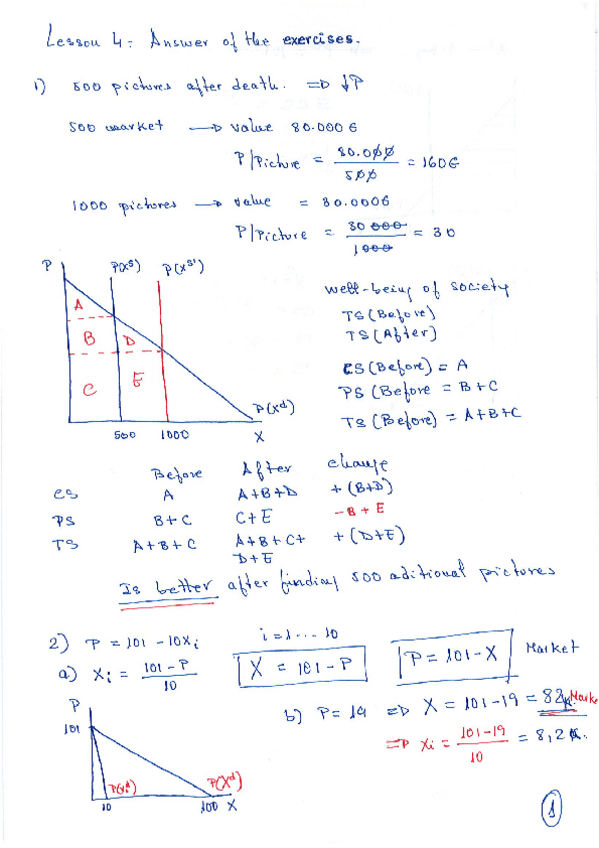 Lesson 4: Answer of the exercises.
1) 500 pictures after death. => ↓P
500 market → value 80.000€
P/Picture = 80.000/500 = 160€
1000 pictures → value = 30.000€
P/Picture = 30 000/1000 = 30
P P(x^s) P(x^s')
A
B D
C E
P(x^d)
500 1000 X
well-being of society
TS (Before)
TS (After)
CS (Before) = A
PS (Before = B+C
TS (Before) = A+B+C
Before After change
CS A A+B+D + (B+D)
PS B+C C+E -B+E
TS A+B+C A+B+C+ + (D+E)
D+E
Is better after finding 500 aditional pictures
2) P = 101 - 10Xi i = 1 ... 10
a) Xi = 101-P/10 X = 101-P P = 101-X Market
b) P = 19 => X = 101-19 = 82 Marke
=> Xi = 101-19/10 = 8,2
P
101
P(x_i^d) P(x^d)
10 100 X
1